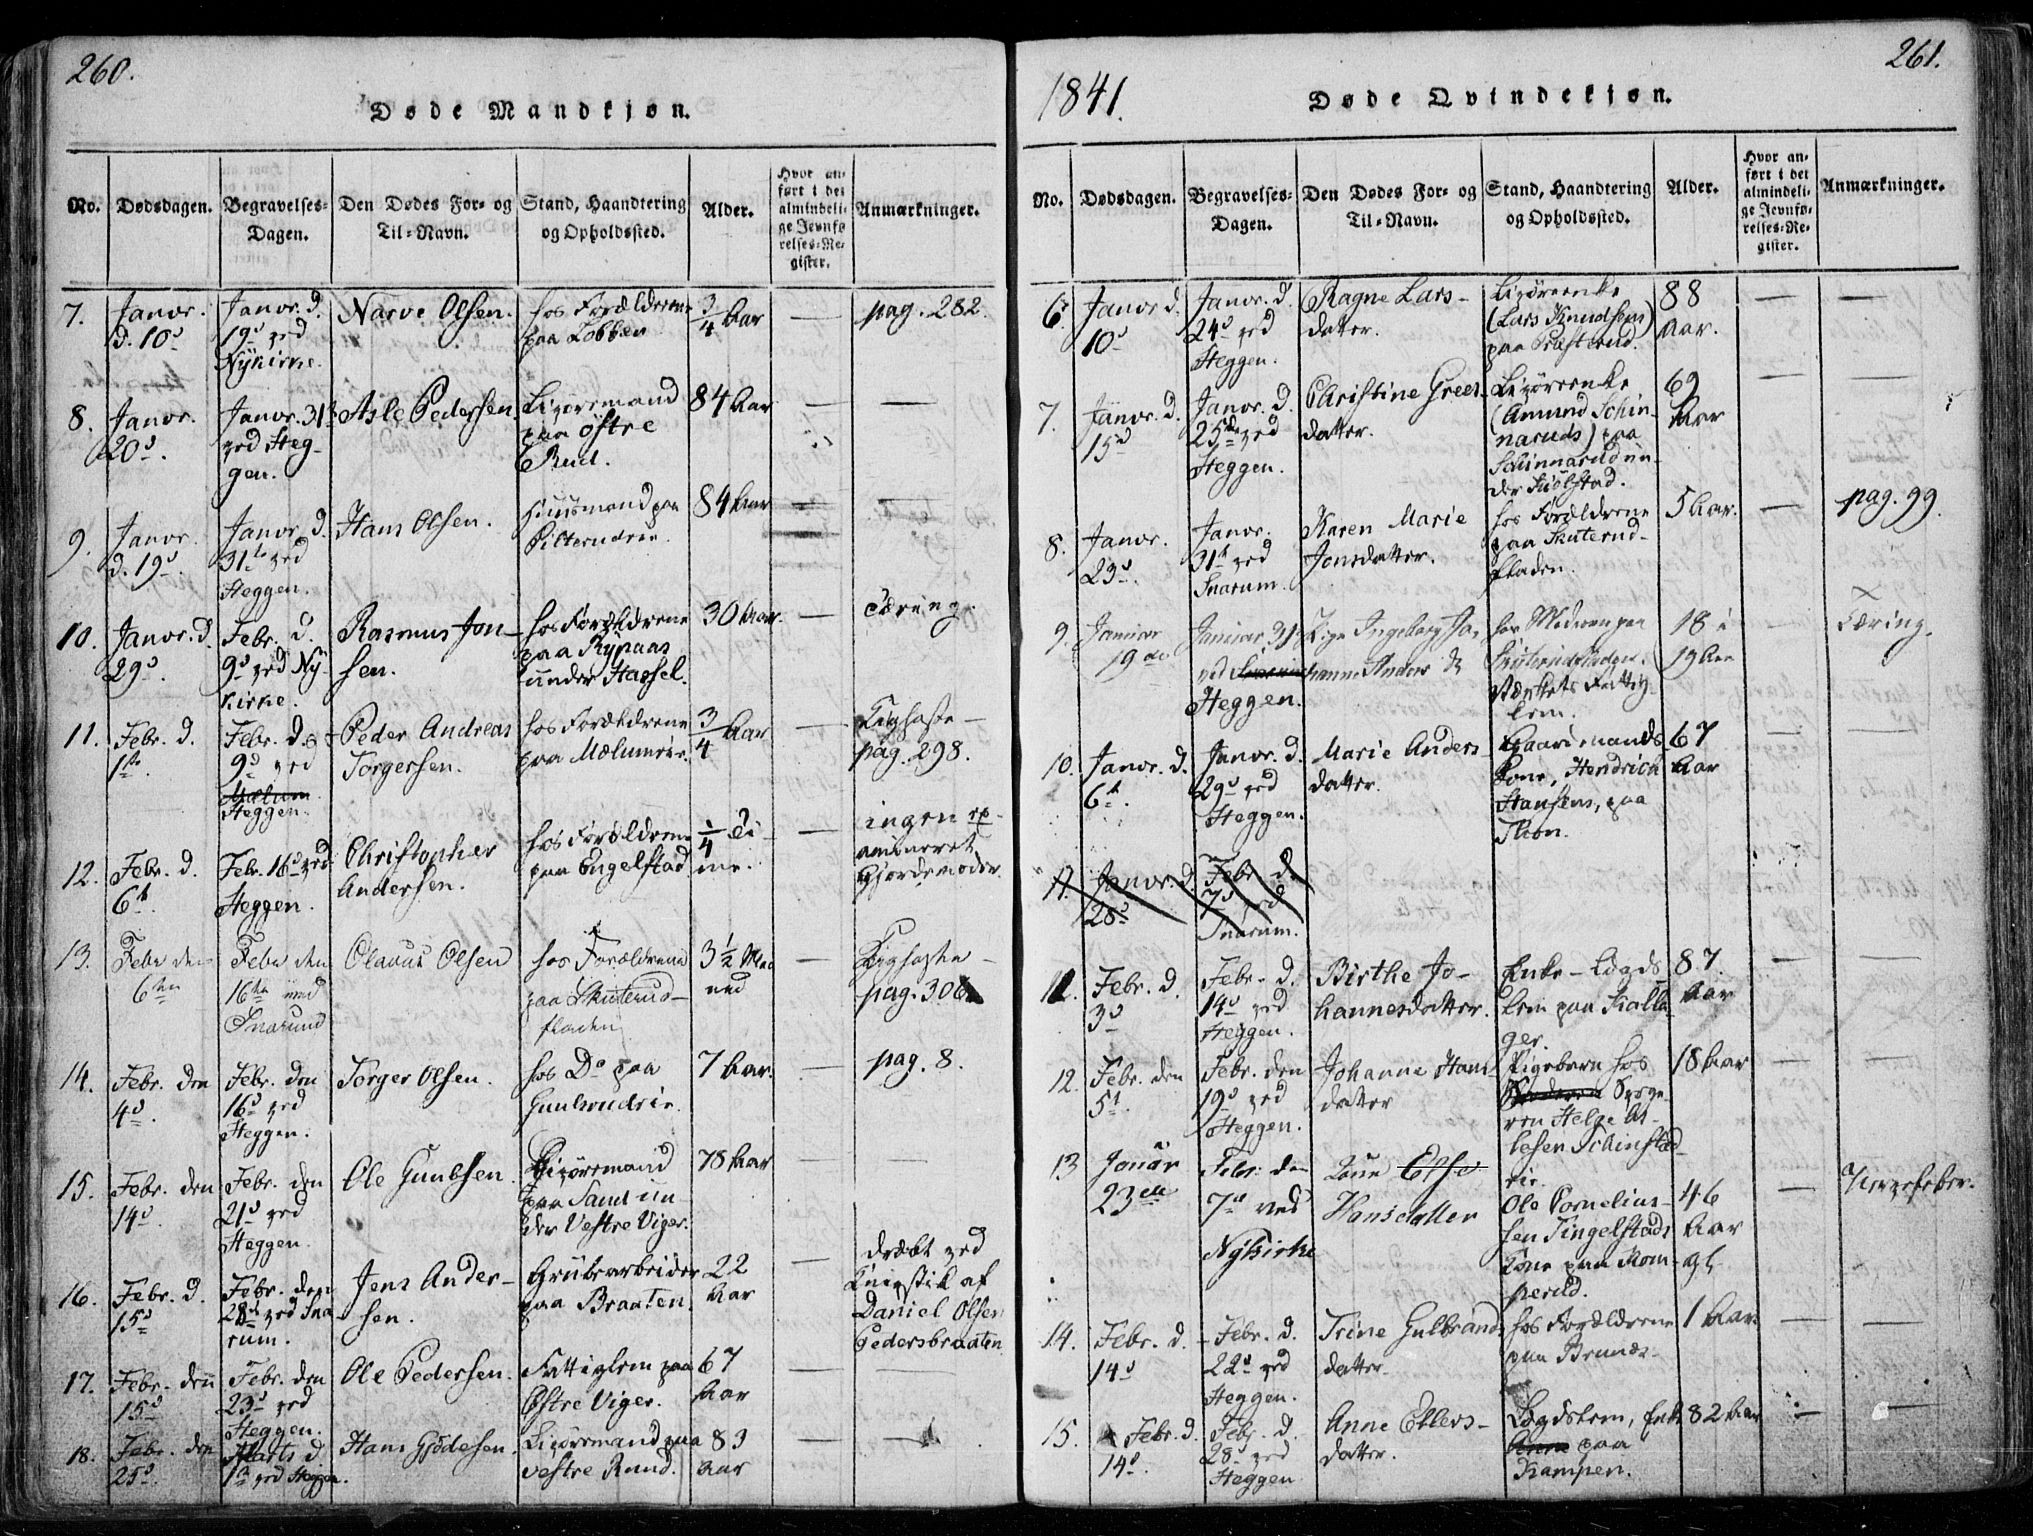 260.
Døde Mandkjøn.
No. Dødsdagen. Begravelses-Dagen. Den Dødes For- og Til-Navn. Stand, Haandtering og Opholdssted. Alder. Hvor anført i det almindelige Jevnførelses-Register. Anmærkninger.
7. Janvr. d. 10d
Janvr. d. 19d ved Nykirke.
Narve Olsen.
hos Forældrene paa Lobben
3/4 Aar
pag. 282.
8. Janvr. 20d.
Janvr. 31te ved Heggen.
Asle Pedersen.
paa Østre Rud.
84 Aar
9. Janvr. d. 19d.
Janvr. d. 31te ved Heggen.
Hans Olsen.
Huusmand paa
84 Aar
10. Janvr. d. 29d.
Febr. d. 9d ved Nykirke.
Rasmus Jonsen.
hos Forældrene paa Rypaas under Hassel.
30 Aar.
Tæring.
11. Febr. d. 1te.
Febr. d. 9d ved
Mælum
Heggen.
Peder Andreas Torgersen.
hos Forældrene paa
3/4 Aar
Kighoste
pag. 298.
12. Febr. d. 6t.
Febr. 16d ved Heggen.
Christopher Andersen.
hos Forældrene paa Engelstad
1/4 Time.
ingen examineret Gjordemoder.
13. Febr den 6te
Febr den 16de ved Snarum
Olaus Olsen
hos Forældrene paa Skuterudfladen
3 1/2 Maaned
Kighoste
pag. 306
14. Febr. den 4d.
Febr. den 16d ved Heggen.
Torger Olsen.
hos Do paa
7 Aar.
pag. 8.
15. Febr. den 14d.
Febr. den 21d ved Heggen.
Ole Gunbsen.
paa Sand under Vestre Viger.
78 Aar
16. Febr. d. 15d
Febr. den 28d ved Snarum.
Jens Andersen.
Grubearbeider paa Braaten.
22 Aar
dræbt ved Knivstik af Daniel Olsen Pedersbraaten
17. Febr. den 15d
Febr. den 23d ved Heggen.
Ole Pedersen.
Fattiglem paa Østre Viger.
67 Aar
18. Febr. den 25d.
Marts d. 1te ved Heggen.
Hans Gjødesen.
paa Vestre Ruud.
83 Aar
1841.
261.
Døde Qvindekjøn.
No. Dødsdagen. Begravelses-Dagen. Den Dødes For- og Til-Navn. Stand, Haandtering og Opholdssted. Alder. Hvor anført i det almindelige Jevnførelses-Register. Anmærkninger.
6. Janvr d. 10d
Janvr. d. 24d ved Heggen.
Ragne Larsdatter.
(Lars Knudsens) paa Præsterud.
88 Aar.
7. Janvr. d. 15d
Janvr. d. 25de ved Heggen.
Christine Greersdatter.
(Amund Schinnaruds) paa Schinnarud under Skolstad.
69 Aar
8. Janvr. 23d.
Janvr. 31te ved Snarum.
Karen Marie Jonsdatter.
hos Forældrene paa Skuterudfladen.
5 Aar.
pag. 99.
9. Januar 19de
Januar 31te ved Heggen.
Pige Ingeborg Johanne Anders D.
hos Moderen paa
18 à 19 Aar
Tæring.
10. Janvr. d. 6t.
Janvr. d. 29d ved Heggen.
Marie Andersdatter.
Gaardmands Kone, Hendrich Hansens, paa
67 Aar
11. Janvr. d. 28d
Febr. d. 7d ved Snarum.
11. Febr. d. 3d
Febr. d. 14d ved Heggen.
Birthe Johannesdatter.
Enke - Lægdslem paa
87. Aar
12. Febr. den 5t.
Febr. den 19d ved Heggen.
Johanne Hansdatter
Pigebarn hos
18 Aar
13 Januar 23de
Febr. den 7de ved Nykirke
Else
Hansdatter
Ole Corneliussen Tingelstads Kone paa
46 Aar
Nervefeber.
14. Febr. d. 14d
Febr. d. 22d ved Heggen.
Trine Gulbrandsdatter.
hos Forældrene paa
1 Aar.
15. Febr. d. 14d.
Febr. d. 28d ved Heggen
Anne Ellersdatter.
Lægdslem, Enke paa Kampen.
82 Aar